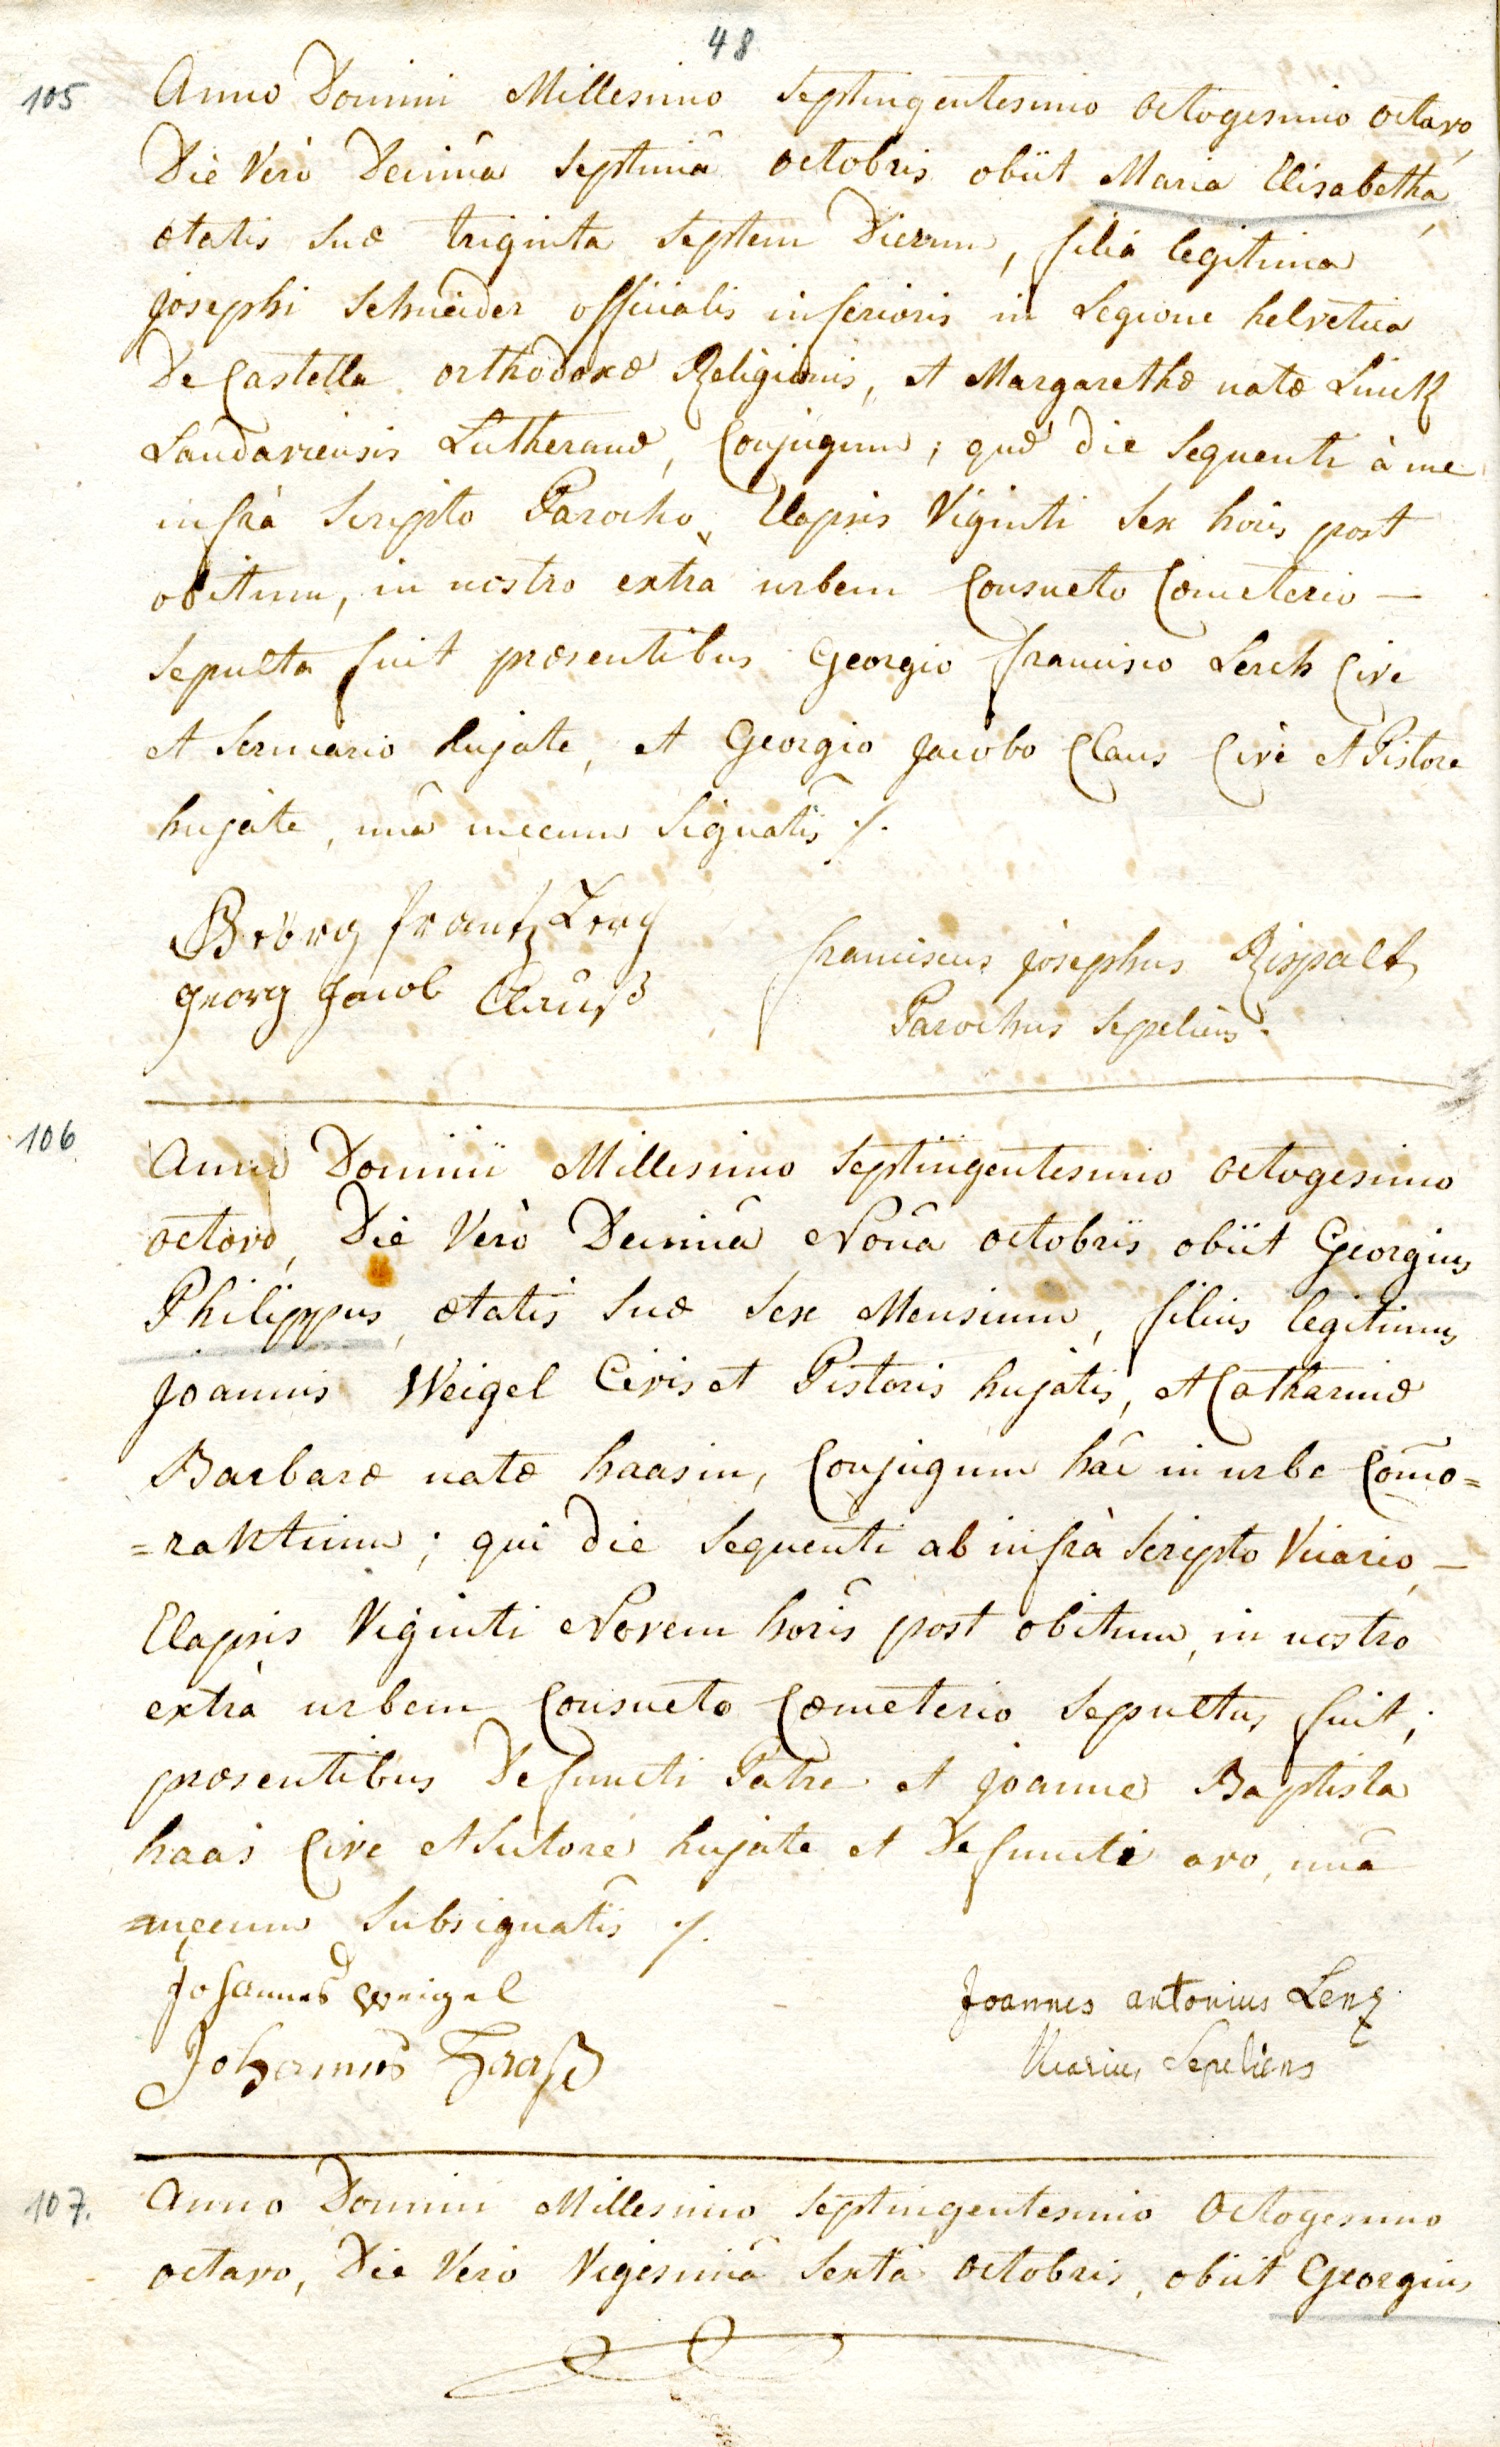 48
105 Anno Domini Millesimo Septingentesimo octogesimo octavo,
Die Verò Decimâ Septimâ octobris obiit Maria Elisabetha,
ætatis suæ triginta septem Dierum, filia legitima
Josephi Schneider officialis inferioris in Legione helvetica
De Castella orthodoxæ Religionis, et Margarethæ natæ Linck
Landaviensis Lutheranæ, Conjugum; quæ die sequenti à me
infrà scripto Parocho, Elapsis Viginti sex horis post
obitum, in nostro extrà urbem Consueto Cœmeterio —
sepulta fuit præsentibus Georgio francisco Lerch Cive
et hujate, et Georgio Jacobo Claus Cive et Pistore
hujate, unâ mecum signatis ./.
Georg frantz Lerg
georg Jacob Clauß
franciscus josephus Rispalt
Parochus sepeliens.
106 Anno Domini Millesimo Septingentesimo octogesimo
octavo, Die Verò Decimâ Nonâ octobris obiit Georgius
Philippus, ætatis suæ sex Mensium, filius legitimus
Joannis Weigel Civis et Pistoris hujatis, et Catharinæ
Barbaræ natæ haasin, Conjugum hâc in urbe Com̃o=
=rantium; qui die sequenti ab infrà scripto Vicario, —
Elapsis Viginti Novem horis post obitum, in nostro
extrà urbem Consueto Cœmeterio sepultus fuit;
præsentibus Defuncti Patre et joanne Baptista
haas Cive et sutore hujate et Defuncti avo, unâ
mecum subsignatis ./.
Johannes Weigel
Johannes Haaß
Joannes antonius Lenz
Vicarius Sepeliens
107. Anno Domini Millesimo septingentesimo octogesimo
octavo, Die Verò Vigesimâ sextâ octobris, obiit Georgius